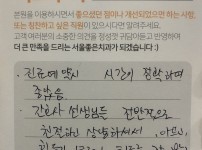 본원을 이용하시면서 좋으셨던 점이나 개선되었으면 하는 사항,
또는 칭찬하고 싶은 직원이 있으시다면 알려주세요.
고객 여러분의 소중한 의견을 정성껏 귀담아듣고 반영하여
더 큰 만족을 드리는 서울좋은치과가 되겠습니다 :)
· 진료예약시 시간이 정확하며
좋았음.
· 간호사 선생님들 전반적으로
친절하고 상냥하셔서